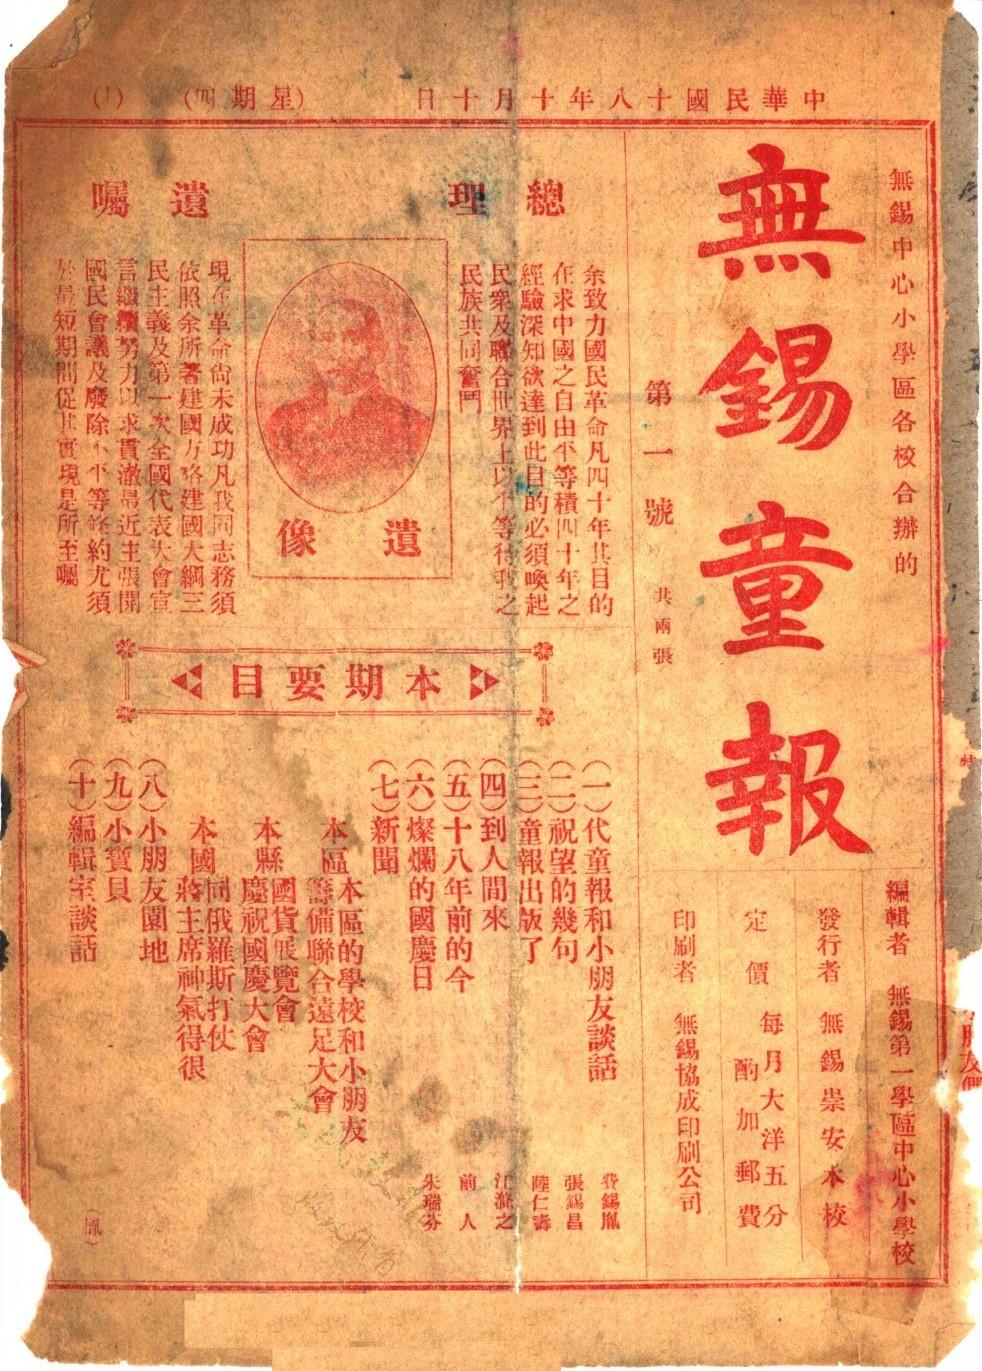 中華民國十八年十月十日
(星期四)
(1)
無錫中心小學區各校合辦的
無錫童報
第一號
共兩張
編輯者 無錫第一學區中心小學校
發行者 無錫崇安本校
定價 每月大洋五分
酌加郵費
印刷者 無錫協成印刷公司
總理遺囑
余致力國民革命凡四十年其目的
在求中國之自由平等積四十年之
經驗深知欲達到此目的必須喚起
民眾及聯合世界上以平等待我之
民族共同奮鬥
遺像
現在革命尚未成功凡我同志務須
依照余所著建國方略建國大綱三
民主義及第一次全國代表大會宣
言繼續努力以求貫澈最近主張開
國民會議及廢除不平等條約尤須
於最短期間促其實現是所至囑
本期要目
(一)代童報和小朋友談話 費錫胤
(二)祝望的幾句 張錫昌
(三)童報出版了 陸仁壽
(四)到人間來 江之
(五)十八年前的今 前人
(六)燦爛的國慶日 朱瑞芬
(七)新聞
本區 本區的學校和小朋友
籌備聯合遠足大會
本縣 國貨展覽會
慶祝國慶大會
本國 同俄羅斯打仗
蔣主席神氣得很
(八)小朋友園地
(九)小寶貝
(十)編輯室談話
(胤)
朋友們